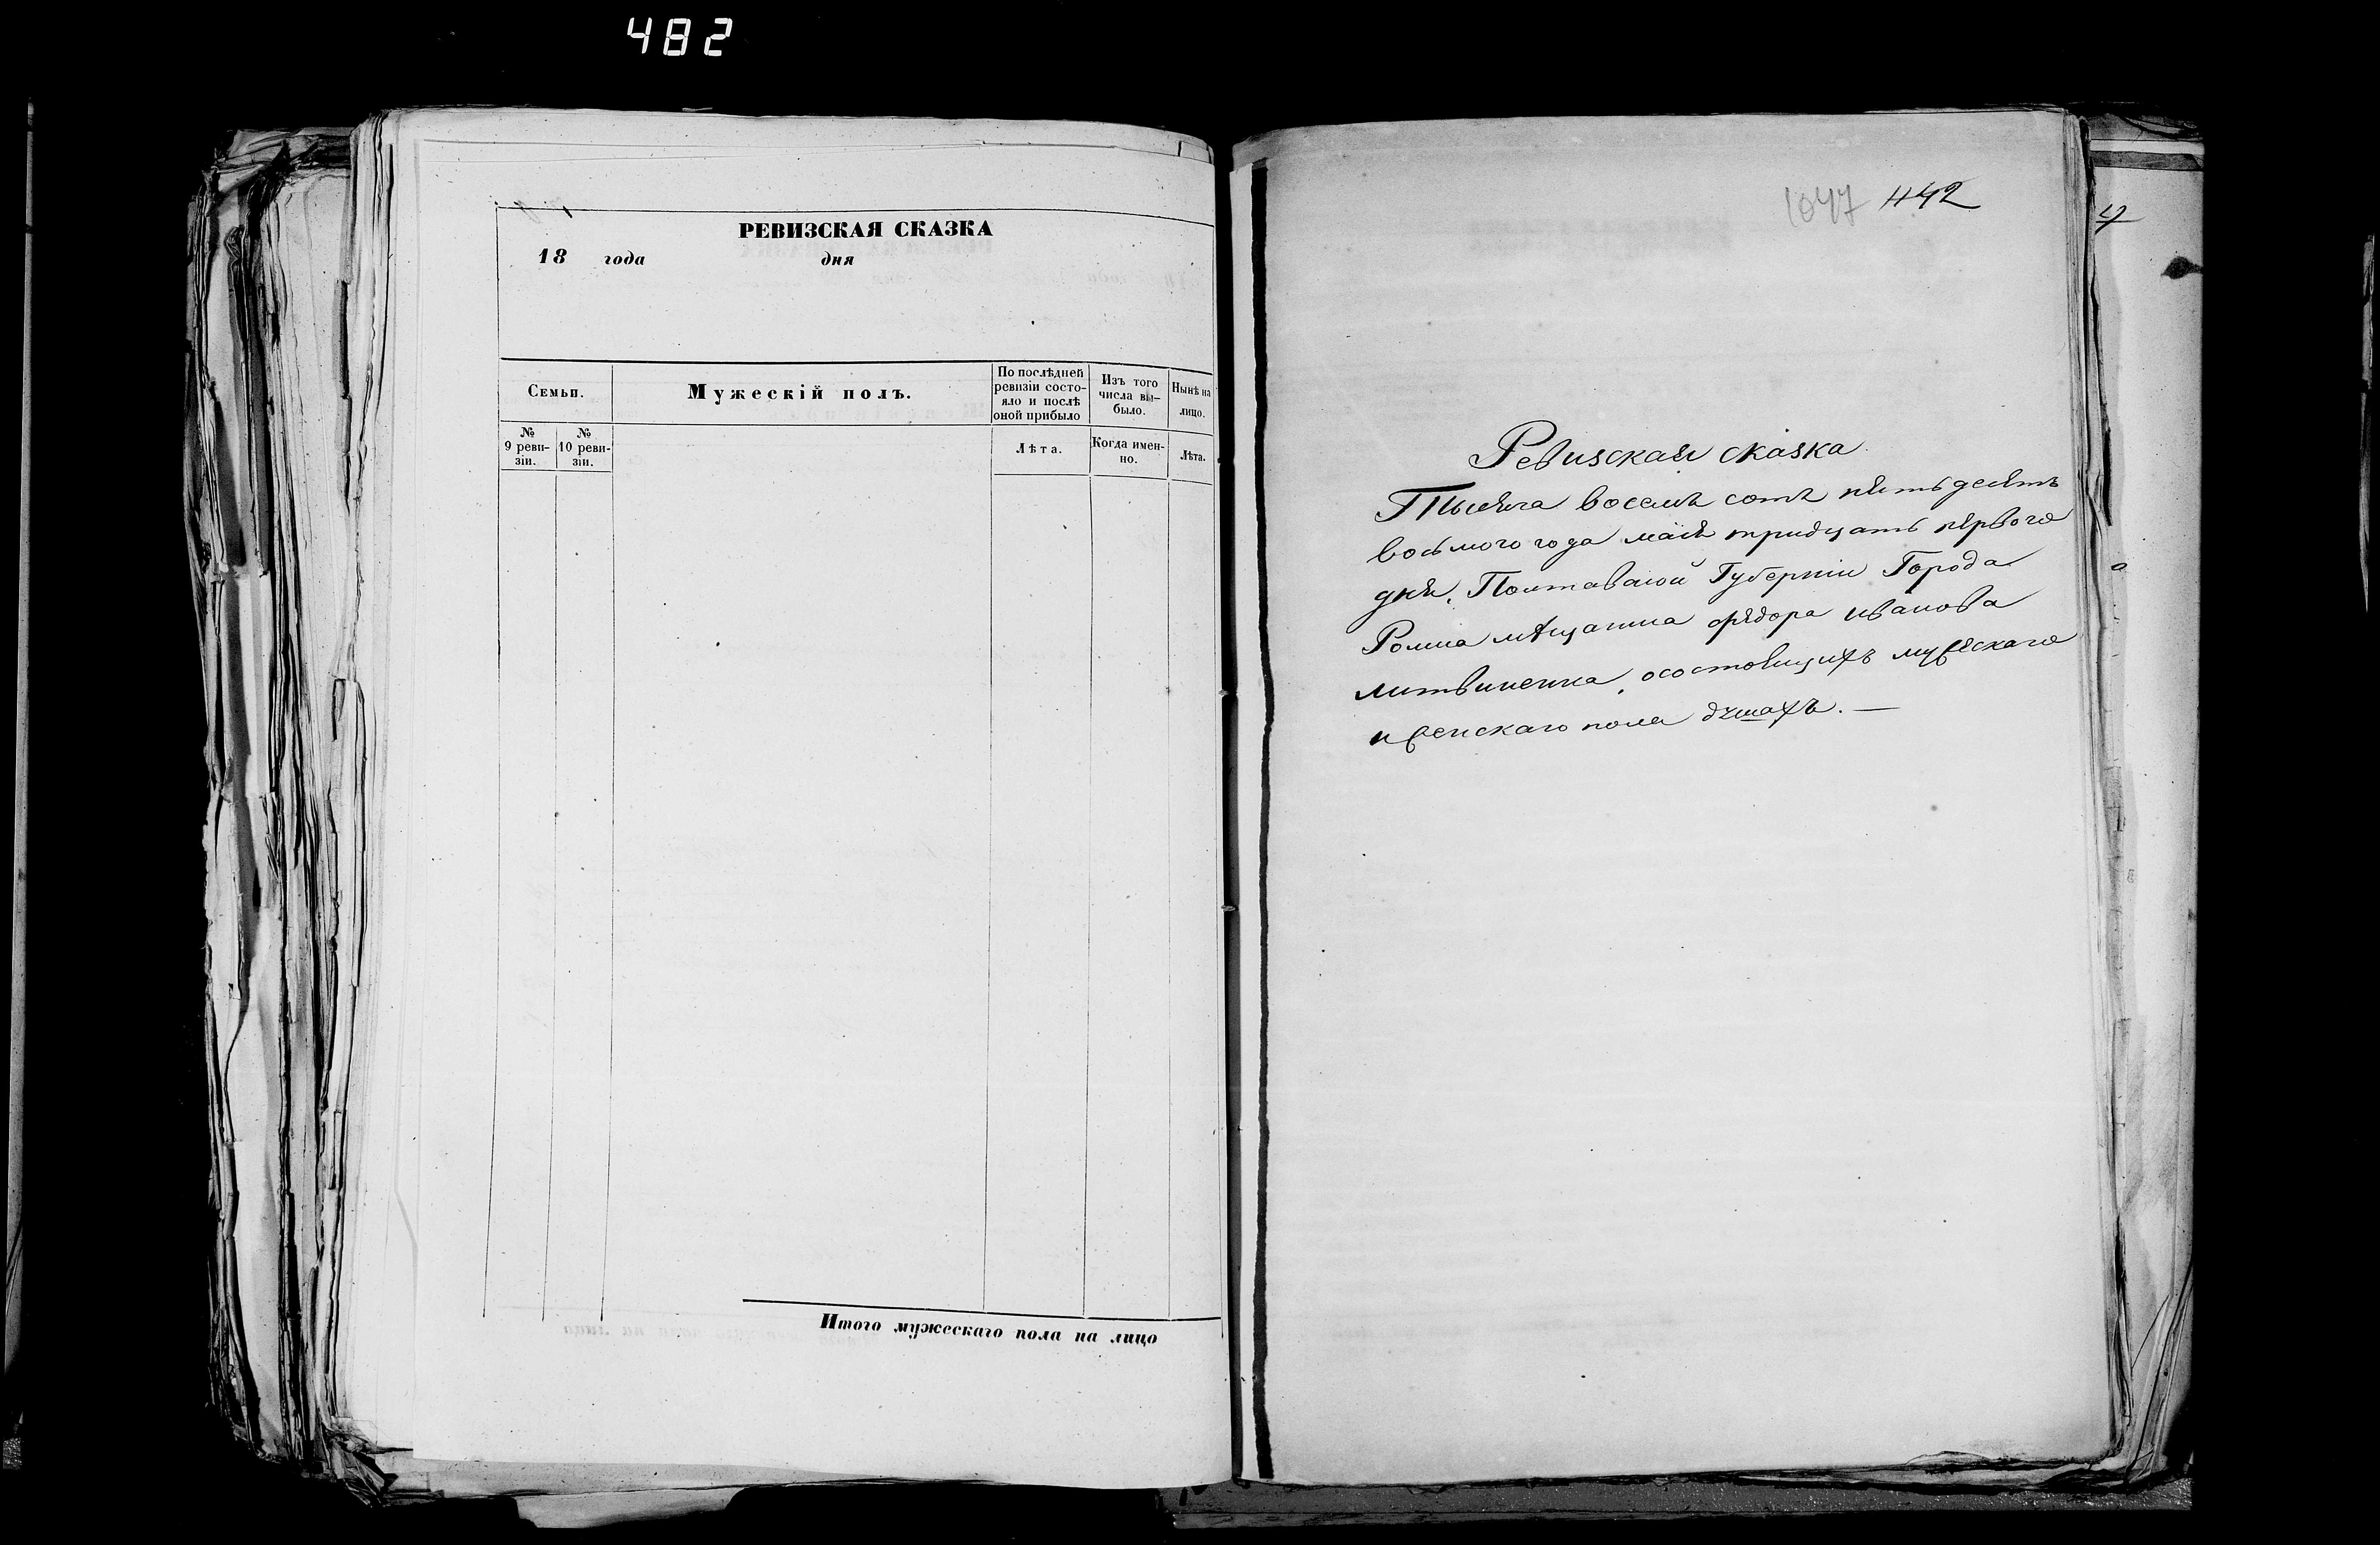 482
РЕВИЗСКАЯ СКАЗКА
18 года дня
Семьи.
Мужескій полъ.
По послѣдней ревизіи состояло и послѣ оной прибыло
Изъ того числа вы-было.
Нынѣ на лицо.
№ 9 реви-зіи.
№ 10 реви-зіи.
Лѣта.
Когда имен-но.
Лѣта.
Итого мужескаго пола на лицо
1047 442
Ревизская сказка
Тысяча восемъ сотъ пятьдесятъ
восьмого года маія тридцать первого
дня, Полтавской Губерніи Города
Ромна мѣщанина Фядора иванова
литвиненка, осостовщихъ мужескаго
и женскаго пола душахъ. —